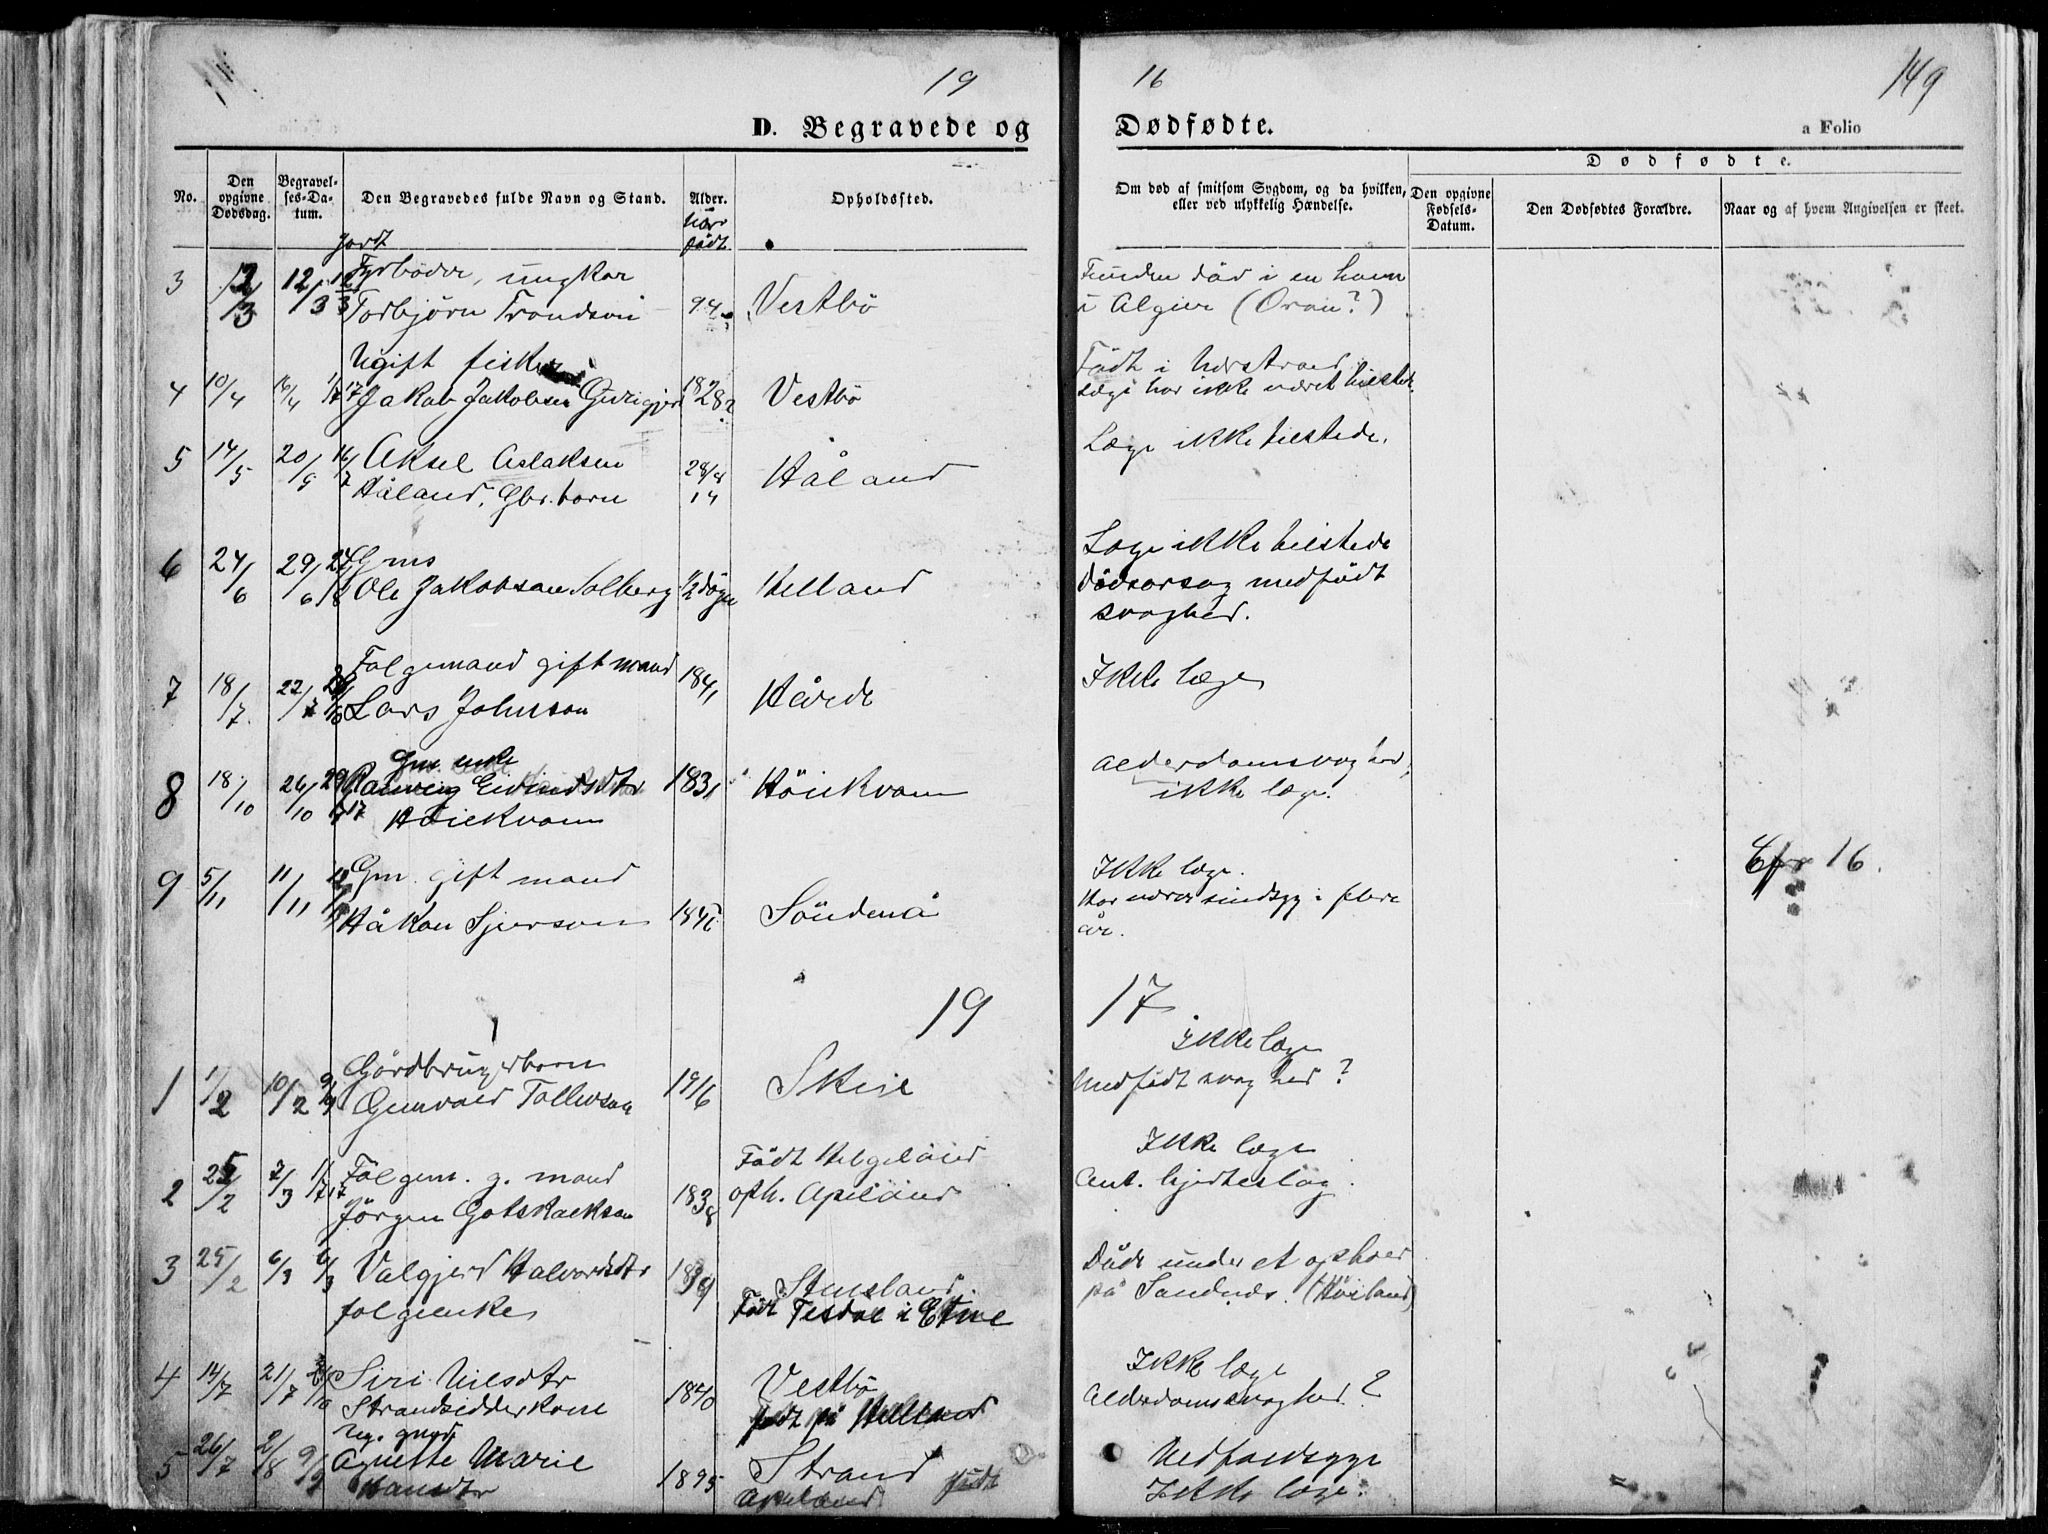 19
16
149
D. Begravede og
Dødfødte.
a Folio
No.
Den opgivne Dødsdag.
Begravelses-Datum.
Den Begravedes fulde Navn og Stand.
Alder.
Opholdssted.
Om død af smitsom Sygdom, og da hvilken, eller ved ulykkelig Hændelse.
Dødfødte.
Den opgivne Fødsels-Datum.
Den Dødfødtes Forældre.
Naar og af hvem Angivelsen er skeet.
Jordt
født
3 12/3 12/3 Fyrbøder, ungkar
Torbjørn Trondson 94 Vestbö
Funden död i en havn
i Algier (Oran?)
4 10/4 16/4 1/7 17 Ugift fisker
Jakob Jakobsen 1828? Vestbö
Födt i
læge har ikke været tilstede
5 14/5 20/5 16/7 Aksel Aslaksen
Håland, Gbr. barn 28/8 14 Håland
Læge ikke tilstede.
6 24/6 29/6 Gms
Ole Jakobsen Solberg 1/2 dögn Helland
Læge ikke tilstede
Dödsorsag medfödt
svaghed.
7 18/7 22/7 Folgemand gift mand
Lars Johnson 1841 Hårede
Ikke læge
8 18/10 26/10 Gm enke
Eivindsdtr 1831 Höiekvam
Höiekvam
Alderdomsvaghed,
ikke læge.
9 5/11 11/11 Gm. gift mand
Håkon Sjurson 184 Söndenå
Ikke læge.
Har været sindssyg i flere
år.
Cfr 16.
19
17
1 1/2 10/2 Gårdbrugerbarn
Gunvald Tollevsen 1916 Skeie
Ikke læge
Medfödt svaghed?
2 25/2 2/3 1/7 17 Fölgem. g. mand
Jörgen Gotskalksen 1838
Födt Helgeland
oph. Apeland
Ikke læge
Ant. hjerteslag.
3 25/2 6/3 6/3 Valgjerd Halvordsdtr
folgeenke 1839 Stensland.
Födt Tesdal i Etne
Döde under et ophold
på Sandnes. (Höiland)
4 14/7 21/7 Siri Nilsdtr
Strandsidderkone 1840 Vestbö
födt på Helland
Ikke læge
Alderdomssvaghed?
5 26/7 2/8 9/9
Agnethe Marie
Hansdtr 1895 Strand födt
Apeland
Nedfaldssyge
Ikke læge.